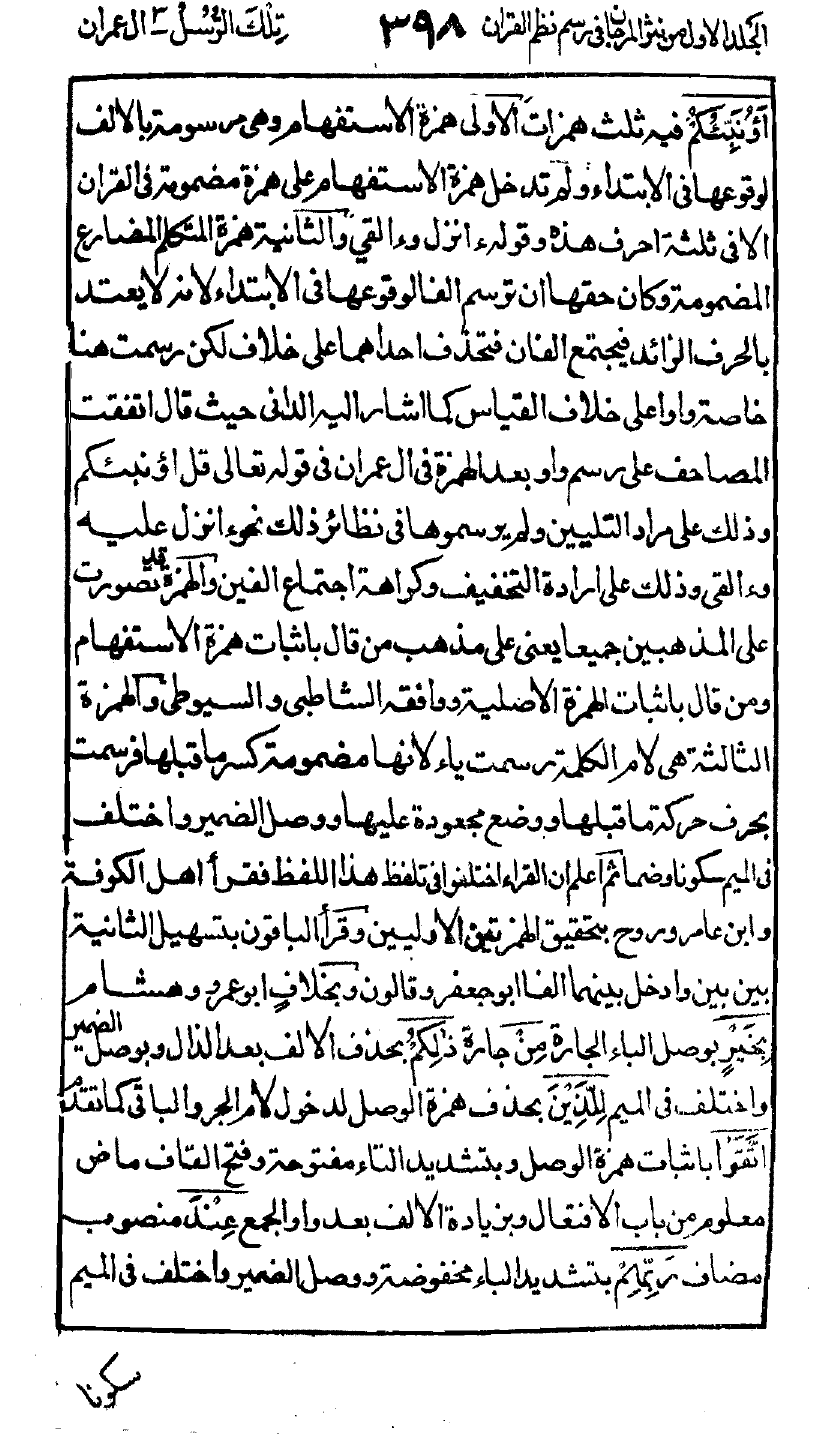 الجلد الاول من نثر المرجان في رسم نظم القران ٣٩٨ تلك الرسل ٣ ال عمران
اَؤُنَبِّئُكُمْ فيه ثلث همزات الاولى همزة الاستفهام وهى مرسومة بالالف
لوقوعها فى الابتداء ولم تدخل همزة الاستفهام على همزة مضمومة فى القران
الا فى ثلثة احرف هذه وقوله ءانزل وءالقي والثانية همزة المتكلم المضارع
المضمومة وكان حقها ان ترسم الفا لوقوعها فى الابتداء لانه لا يعتد
بالحرف الزائد فيجتمع الفان فتحذف احداهما على خلاف لكن رسمت هنا
خاصة واوا على خلاف القياس كما اشار اليه الدانى حيث قال اتفقت
المصاحف على رسم واو بعد الهمزة فى ال عمران فى قوله تعالى قل اؤنبئكم
وذلك على مراد التليين ولم يرسموها فى نظائر ذلك نحو ءانزل عليه
وءالقى وذلك على ارادة التخفيف وكراهة اجتماع الفين والهمزة قد تصورت
على المذهبين جميعا يعنى على مذهب من قال باثبات همزة الاستفهام
ومن قال باثبات الهمزة الاصلية ووافقه الشاطبى والسيوطى والهمزة
الثالثة هى لام الكلمة رسمت ياء لانها مضمومة كسر ما قبلها فرسمت
بحرف حركة ما قبلها ووضع مجعودة عليها ووصل الضمير واختلف
فى الميم سكونا وضما ثم اعلم ان القراء اختلفوا فى تلفظ هذا اللفظ فقرأ اهل الكوفة
وابن عامر وروح بتحقيق الهمزتين الاوليين وقرأ الباقون بتسهيل الثانية
بين بين وادخل بينهما الفا ابو جعفر وقالون وبخلاف ابو عمرو وهشام
بِخَيْرٍ بوصل الباء الجارة مِنْ جارة ذٰلِكُمْ بحذف الالف بعد الذال وبوصل الضمير
واختلف فى الميم لِلَّذِيْنَ بحذف همزة الوصل لدخول لام الجر والباقى كما تقدم
اتَّقَوْا باثبات همزة الوصل وبتشديد التاء مفتوحة وفتح القاف ماض
معلوم من باب الافتعال وبزيادة الالف بعد واو الجمع عِنْدَ منصوب
مضاف رَبِّهِمْ بتشديد الباء مخفوضة ووصل الضمير واختلف فى الميم
سكونا